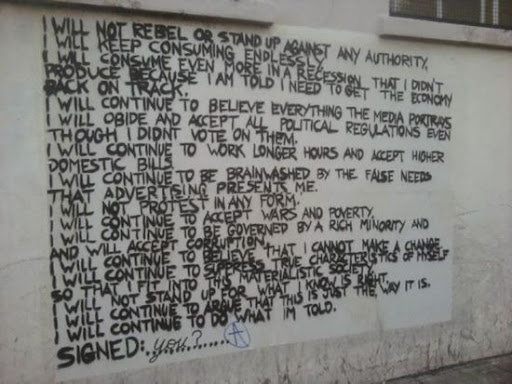 I WILL NOT REBEL OR STAND UP AGAINST ANY AUTHORITY,
I WILL KEEP CONSUMING ENDLESSLY.
I WILL CONSUME EVEN MORE IN A RECESSION THAT I DIDN'T
PRODUCE BECAUSE I AM TOLD I NEED TO GET THE ECONOMY
BACK ON TRACK.
I WILL CONTINUE TO BELIEVE EVERYTHING THE MEDIA PORTRAYS
I WILL OBIDE AND ACCEPT ALL POLITICAL REGULATIONS EVEN
THOUGH I DIDNT VOTE ON THEM.
I WILL CONTINUE TO WORK LONGER HOURS AND ACCEPT HIGHER
DOMESTIC BILLS
I WILL CONTINUE TO BE BRAINWASHED BY THE FALSE NEEDS
THAT ADVERTISING PRESENTS ME.
I WILL NOT PROTEST IN ANY FORM.
I WILL CONTINUE TO ACCEPT WARS AND POVERTY,
I WILL CONTINUE TO BE GOVERNED BY A RICH MINORITY AND
AND WILL ACCEPT CORRUPTION,
I WILL CONTINUE TO BELIEVE THAT I CANNOT MAKE A CHANGE
I WILL CONTINUE TO SUPPRESS TRUE CHARACTERISTICS OF MYSELF
SO THAT I FIT INTO THIS MATERIALISTIC SOCIETY
I WILL NOT STAND UP FOR WHAT I KNOW IS RIGHT.
I WILL CONTINUE TO ARGUE THAT THIS IS JUST THE WAY IT IS.
I WILL CONTINUE TO DO WHAT IM TOLD.
SIGNED:..you?..........A